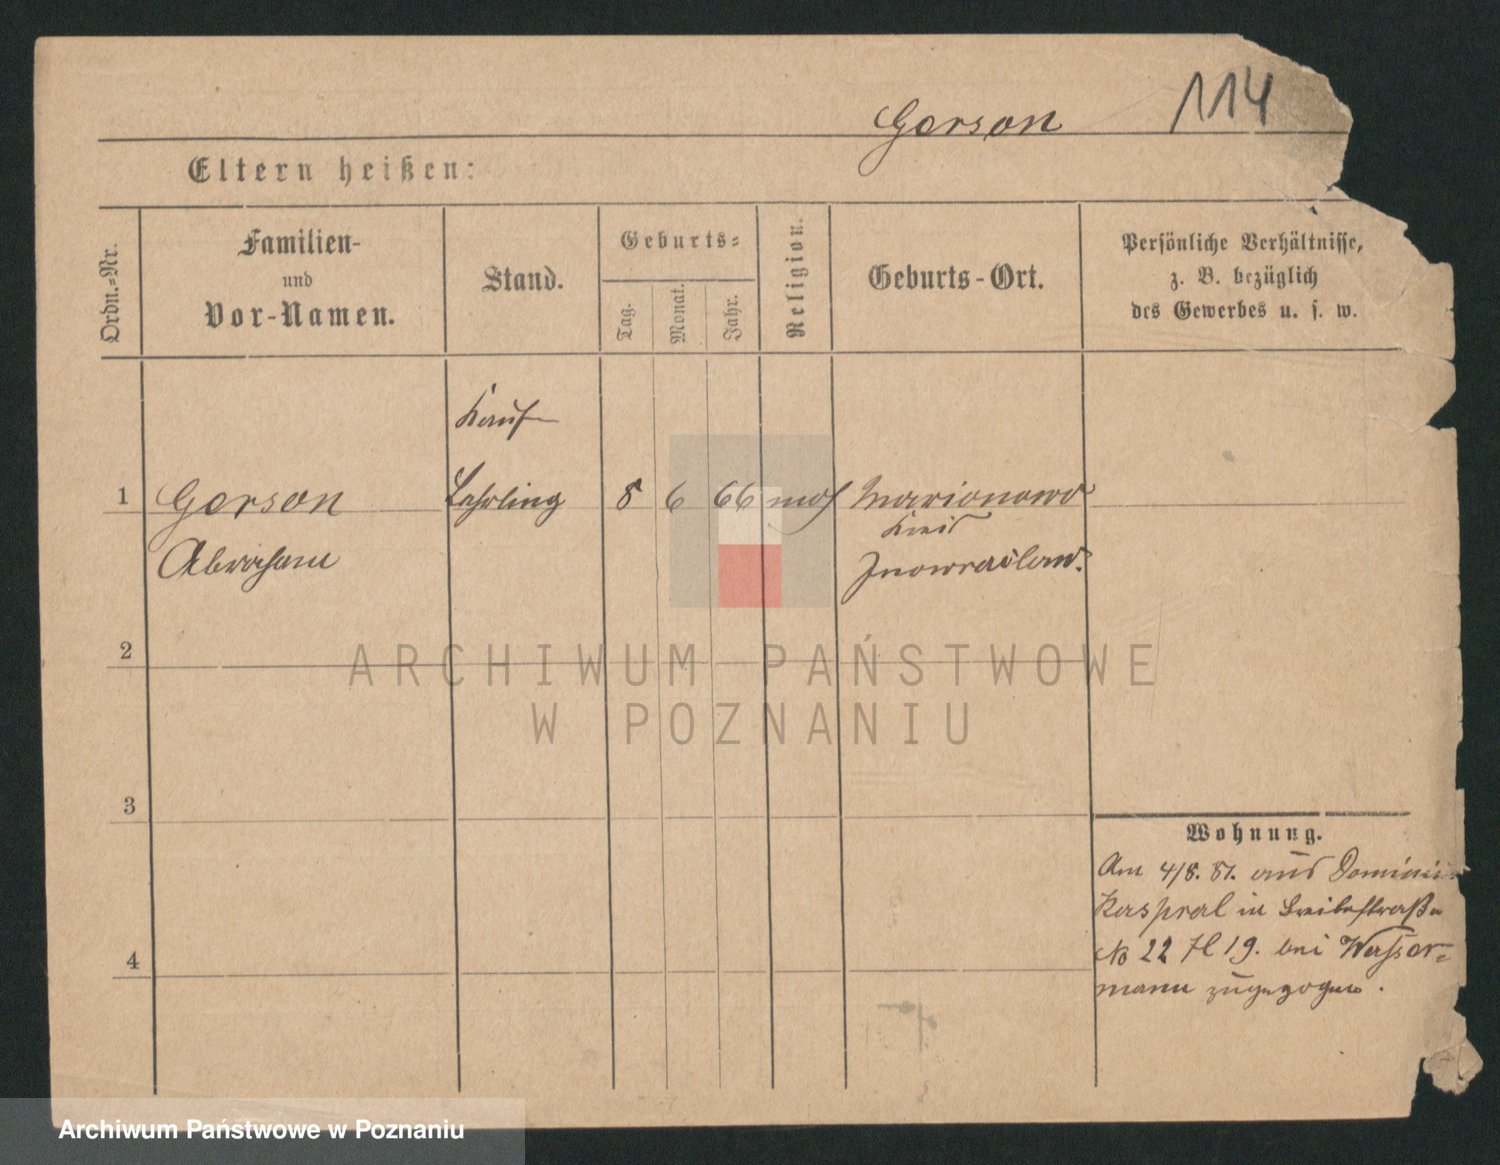 Gerson
114
Eltern heißen:
Ordn.-Nr.
Familien-
und
Vor-Namen.
Stand.
Geburts-
Tag.
Monat.
Jahr.
Religion.
Geburts-Ort.
Persönliche Verhältnisse,
z. B. bezüglich
des Gewerbes u. s. w.
Kauf
1 Gerson Lehrling 8 6 66 mos Marionowo
Kreis
Abraham Inowraclaw.
2
3
4
Wohnung.
Am 4/8. 81. aus Dominium
Kaspral in Breitestraße
No 22 19. bei Wasser-
mann zugezogen.
ARCHIWUM PAŃSTWOWE
W POZNANIU
Archiwum Państwowe w Poznaniu